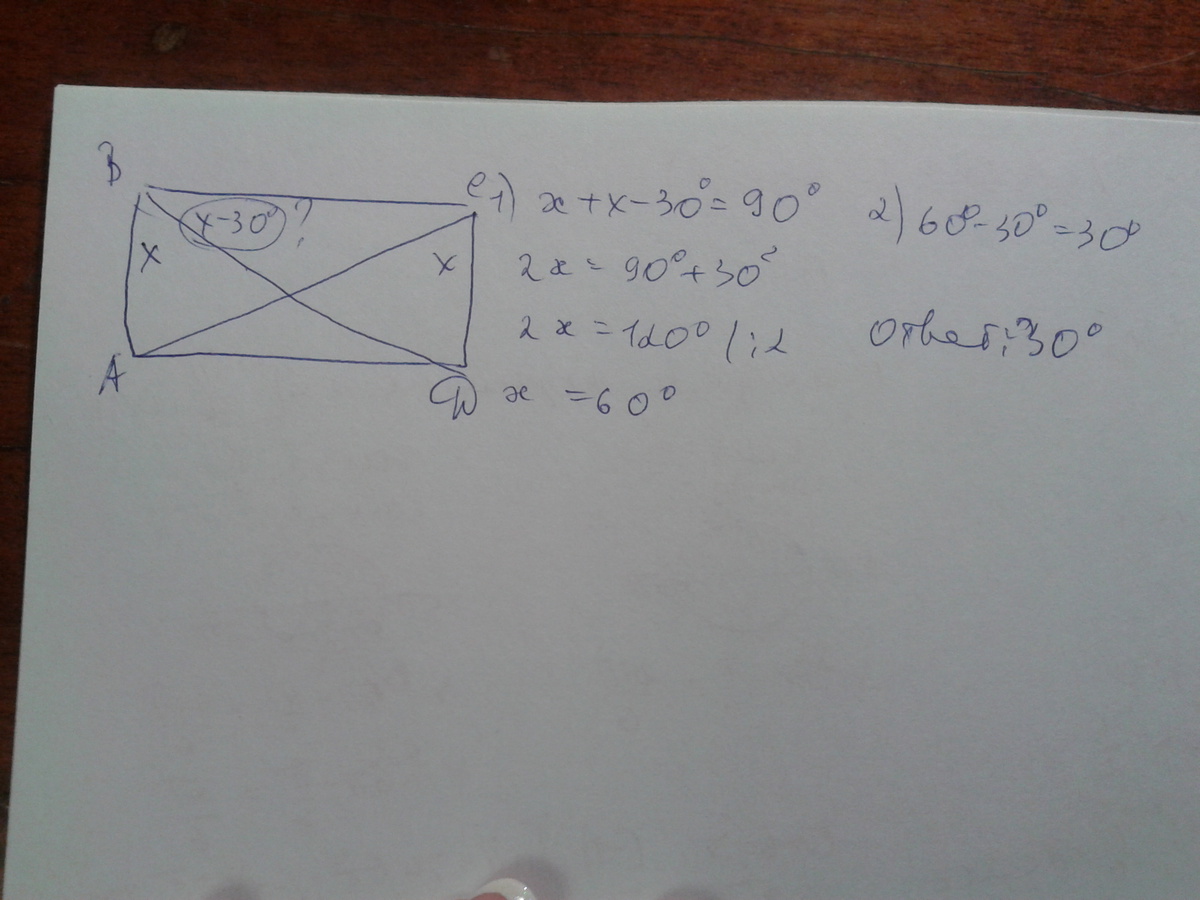 B
C
x-30° ?
x
x
A
D
1) x+x-30°=90°
2x=90°+30°
2x=120° /:2
x=60°
2) 60°-30°=30°
Ответ: 30°